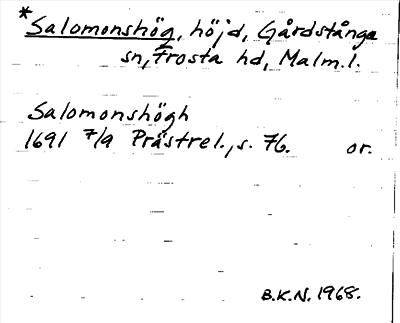 *Salomonshög, höjd, Gårdstånga
sn, Frosta hd, Malm.l.
Salomonshögh
1691 7/9 Prästrel., s. 76. or.
B.K.N. 1968.